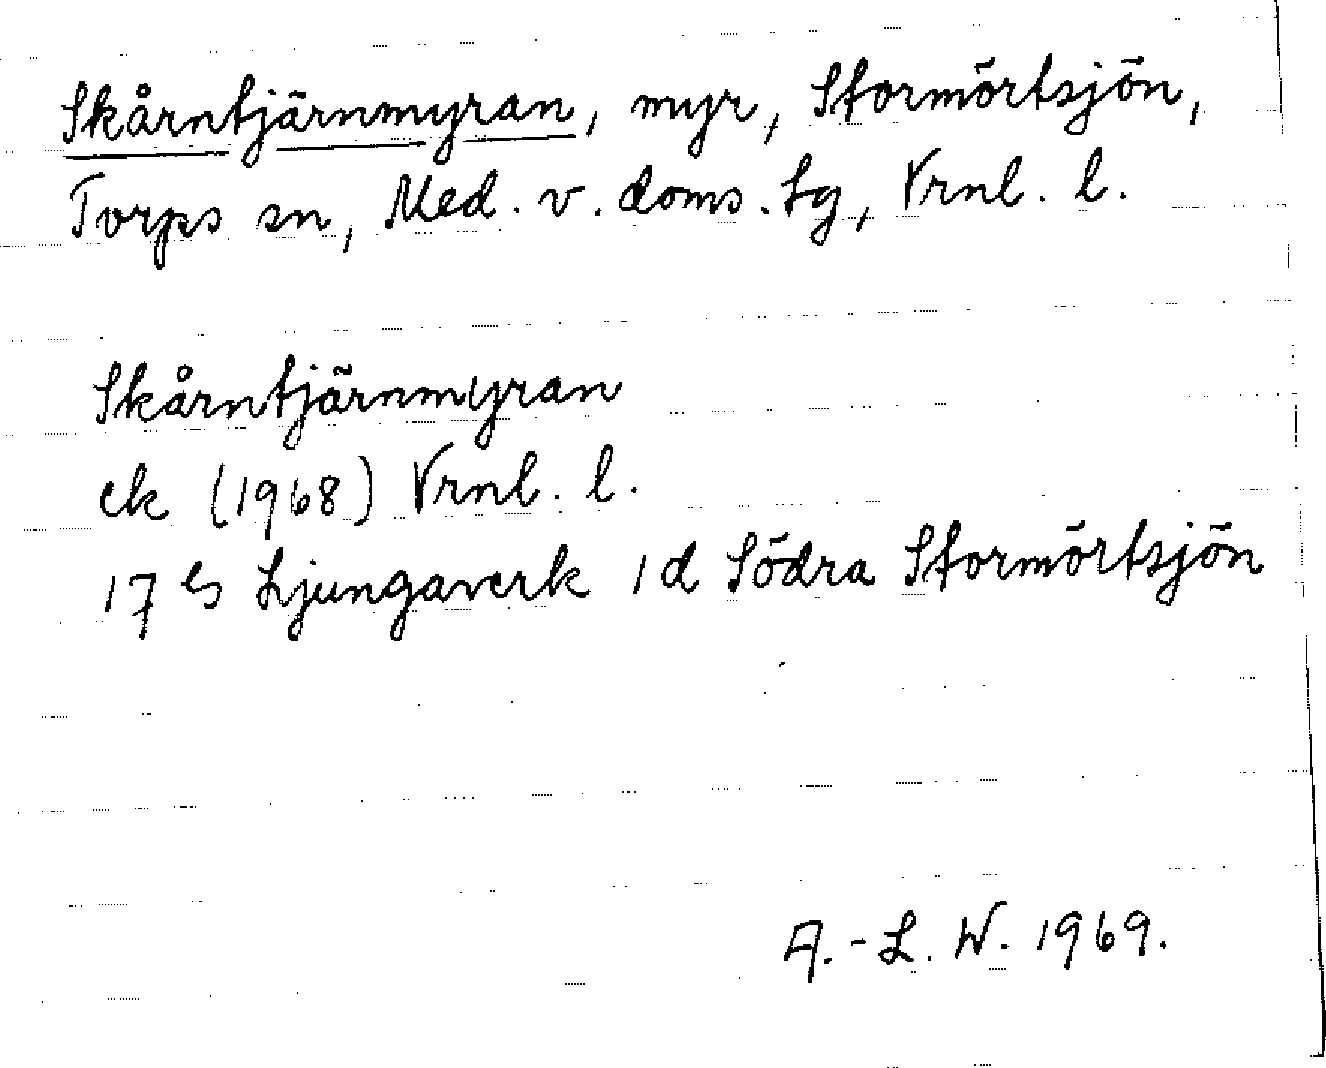 Skårntjärnmyran, myr, Stormörtsjön,
Torps sn, Med. v. doms. tg, Vrnl. l.
Skårntjärnmyran
ek (1968) Vrnl. l.
17 G Ljungaverk 1d Södra Stormörtsjön
A.-L. W. 1969.